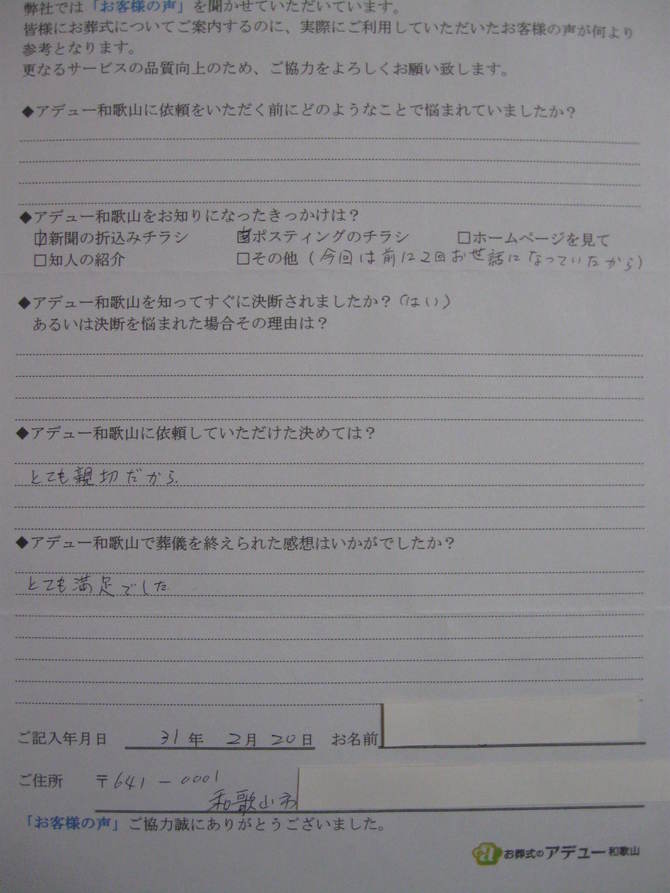 弊社では「お客様の声」を聞かせていただいています。
皆様にお葬式についてご案内するのに、実際にご利用していただいたお客様の声が何より
参考となります。
更なるサービスの品質向上のため、ご協力をよろしくお願い致します。
◆アデュー和歌山に依頼をいただく前にどのようなことで悩まれていましたか？
◆アデュー和歌山をお知りになったきっかけは？
☑新聞の折込みチラシ ☑ポスティングのチラシ □ホームページを見て
□知人の紹介 □その他（今回は前に2回お世話になっていたから）
◆アデュー和歌山を知ってすぐに決断されましたか？（はい）
あるいは決断を悩まれた場合その理由は？
◆アデュー和歌山に依頼していただけた決めては？
とても親切だから
◆アデュー和歌山で葬儀を終えられた感想はいかがでしたか？
とても満足でした
ご記入年月日 31年 2月 20日 お名前
ご住所 〒641-0001
和歌山市
「お客様の声」ご協力誠にありがとうございました。
a お葬式のアデュー和歌山